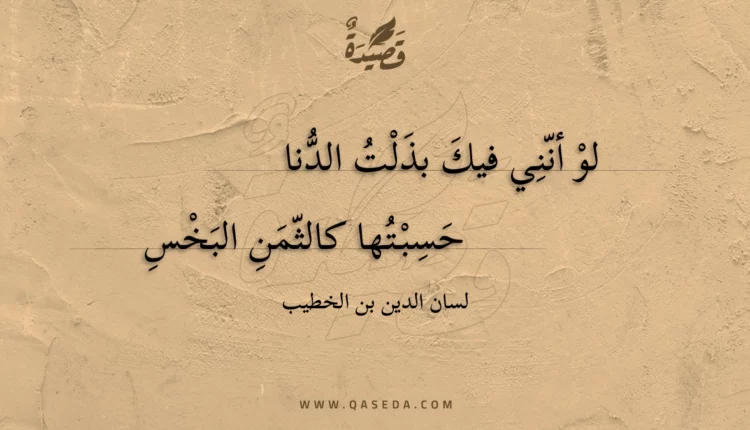 قَصِيدَةٌ
لوْ أنّنِي فيكَ بذَلْتُ الدُّنا
حَسِبْتُها كالثّمَنِ البَخْسِ
لسان الدين بن الخطيب
WWW.QASEDA.COM